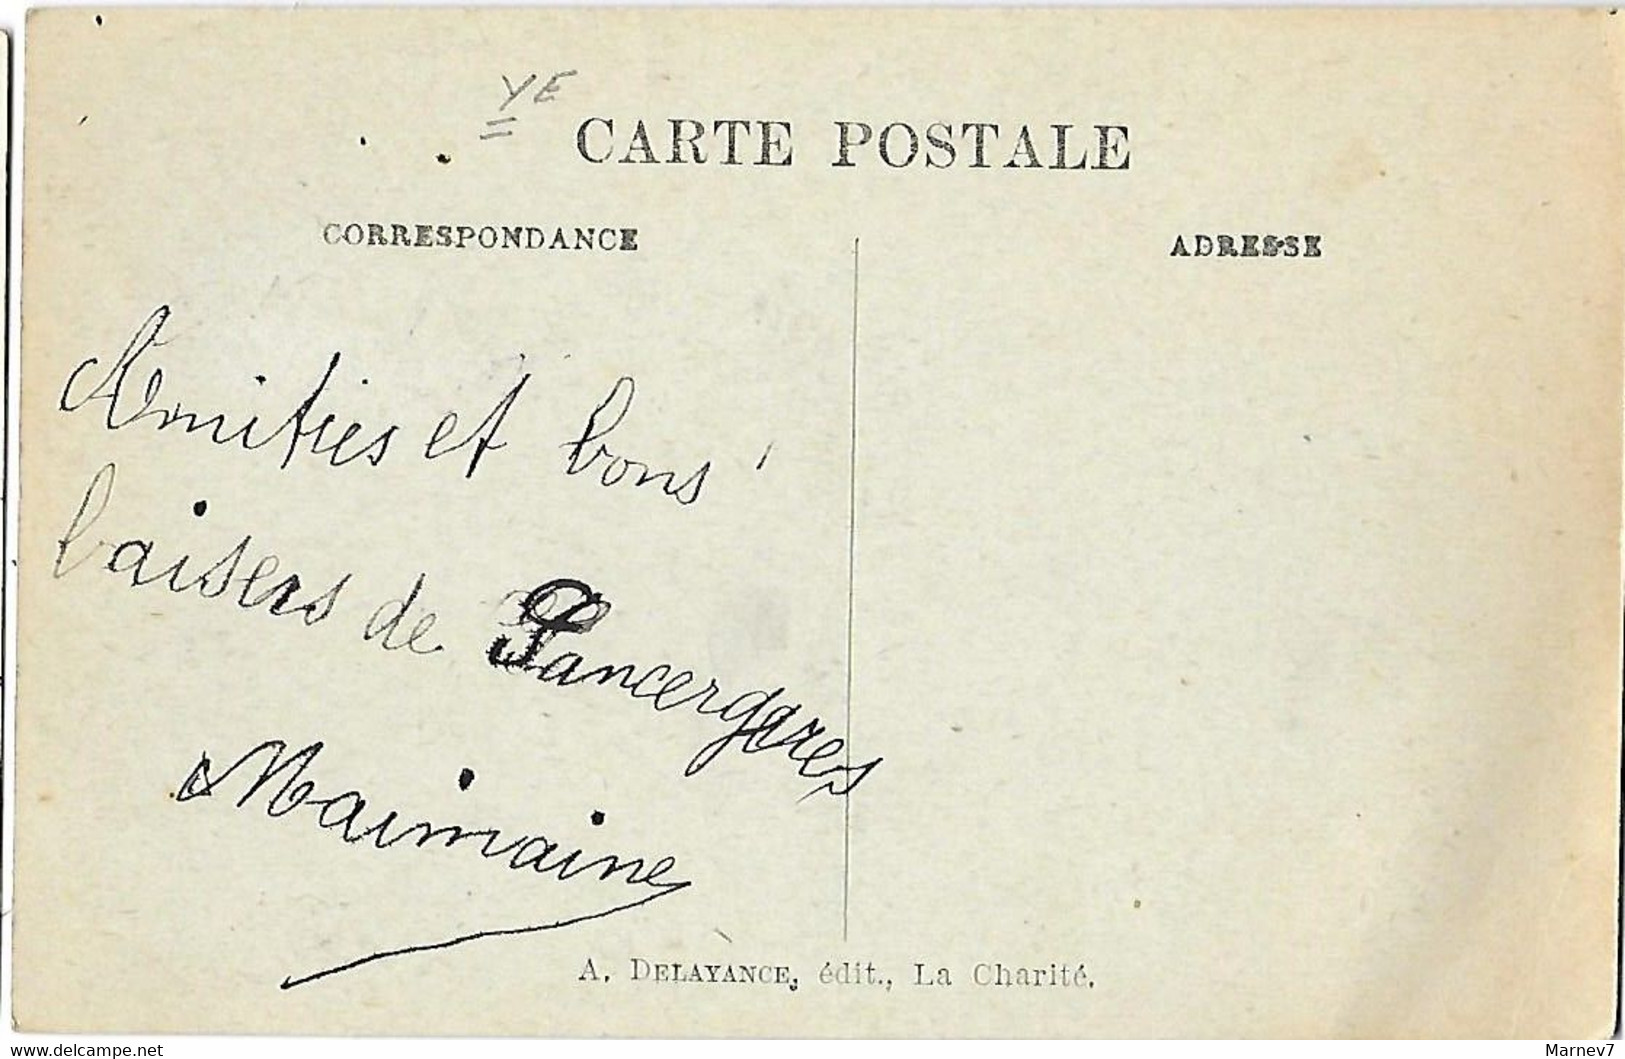 YE
CARTE POSTALE
CORRESPONDANCE
ADRESSE
Amitiés et bons
baisers de Sancergues
Maimaine
A. DELAYANCE, édit., La Charité.
www.delcampe.net
Marnev7